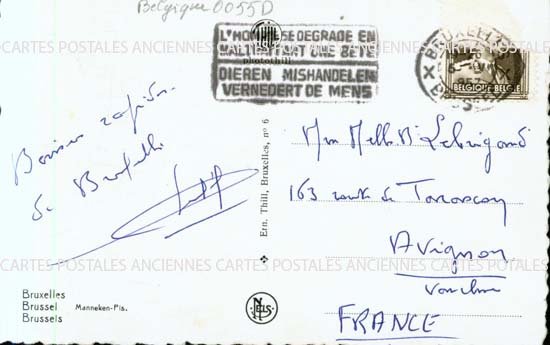 Belgique 0055D
L'HOMME SE DEGRADE EN
MALTRAITANT UNE BETE
DIEREN MISHANDELEN
VERNEDERT DE MENS
photothill
BRUXELLES
BRUSSEL
BELGIQUE-BELGIE
CARTES POSTALES ANCIENNES CARTES POSTALES ANCIENNES
Bons
de Bruxelles
Ern. Thill, Bruxelles, nº 6
163 route de Tarascon
Avignon
Vaucluse
FRANCE
CARTES POSTALES ANCIENNES CARTES POSTALES ANCIENNES
Bruxelles
Brussel Manneken-Pis.
Brussels
NELS